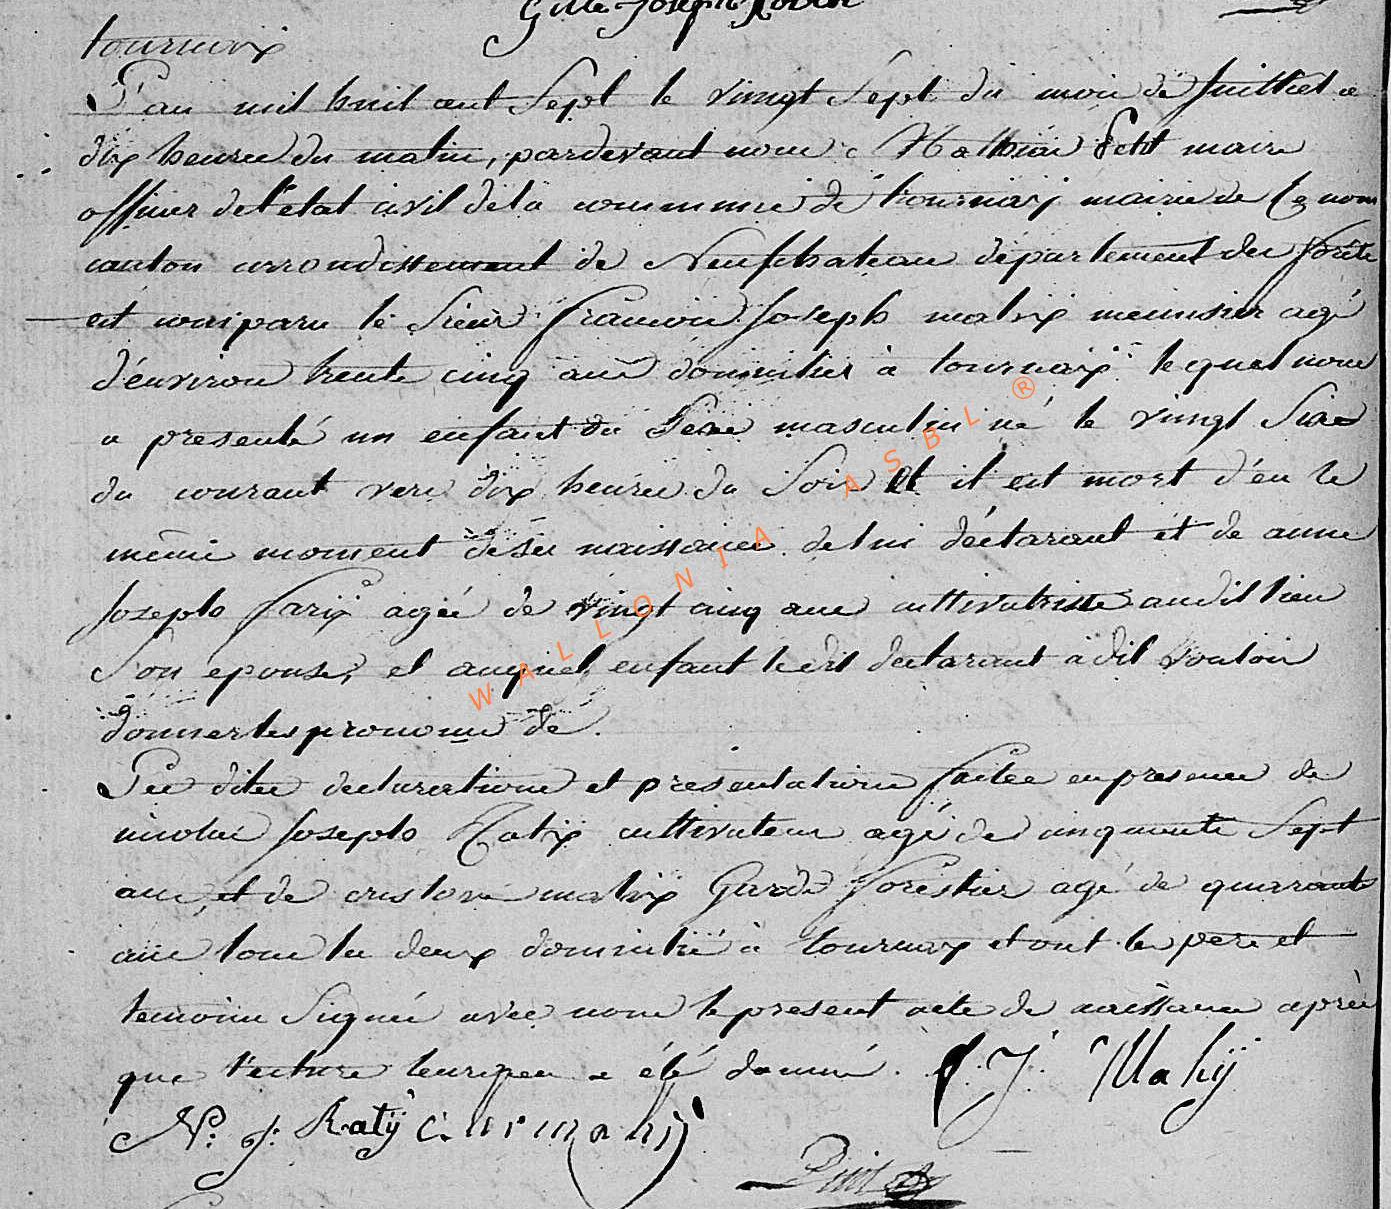 Gille Joseph
tournaÿ
L'an mil huit cent Sept le vingt Sept du mois de Juillet a
dix heures du matin, pardevant nous Mathieu Petit maire
officier de l'état civil de la commune de tournaÿ mairie de
canton arrondissement de Neufchateau département des forêts
est comparu le Sieur francois Joseph mahÿ meunsier agé
d'environ trente cinq ans domicilier à tournaÿ lequel nous
a presenté un enfant du Sexe masculin né le vingt Sixe
du courant vers dix heures du Soir et il est mort d'en le
même moment de sa naissance de lui déclarant et de anne
Joseph agée de vingt cinq ans cultivatrisse audit lieu
Son epouse, et auquel enfant ledit declarant a dit vouloir
donner les pronoms de.
Les dites declarations et presentations faites en presence de
nicolas Joseph Ratÿ cultivateur agé de cinquante Sept
ans, et de mahÿ Garde forestier agé de quarante
ans tous les deux domicilié à tournaÿ et ont les pere et
temoins Signés avec nous le present acte de naissance après
que lecture leur en a été donné. f: J: Mahÿ
N: J: Ratÿ mahÿ
Petit
WALLONIA ASBL ®